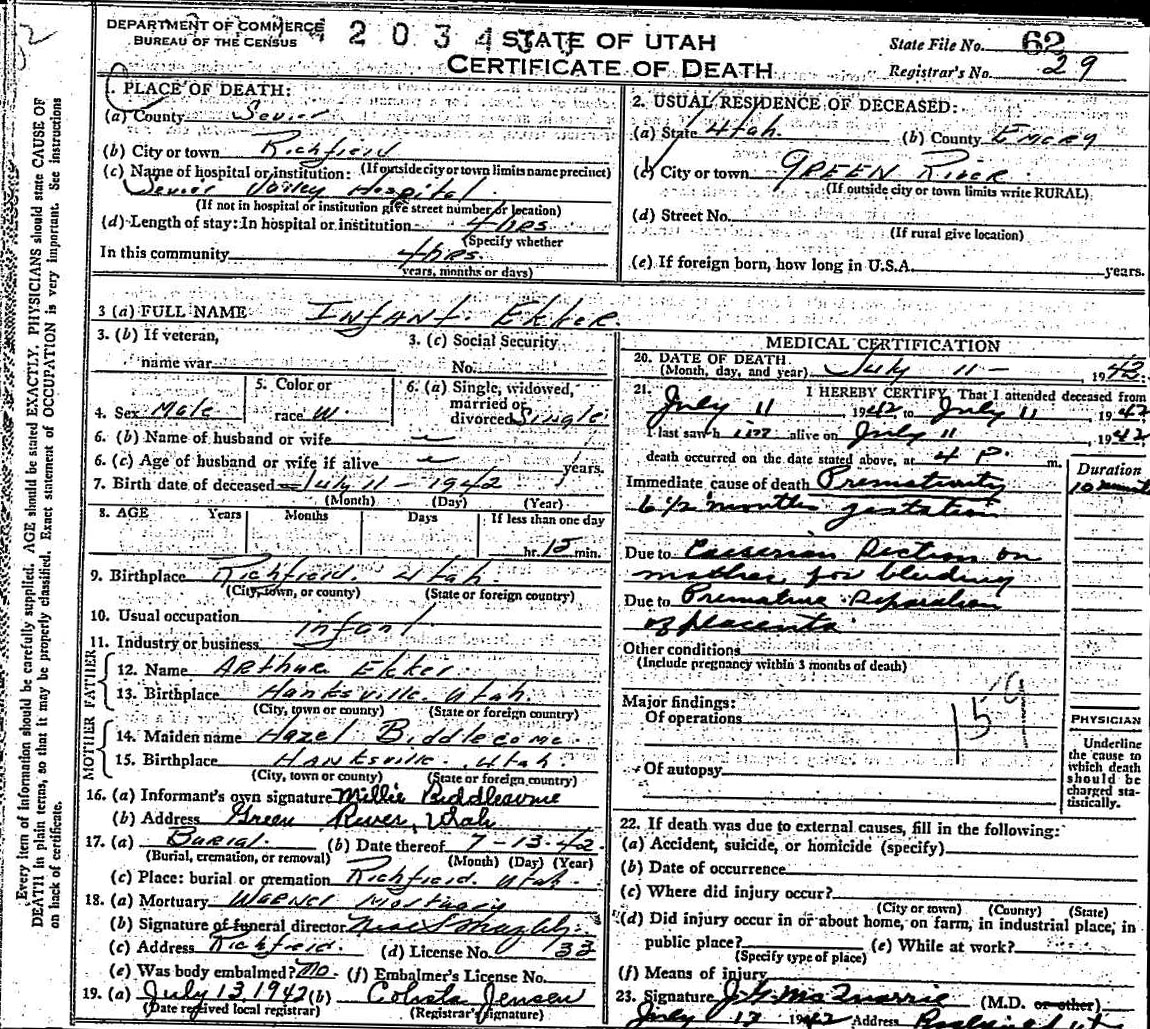 DEPARTMENT OF COMMERCE
BUREAU OF THE CENSUS
2034
STATE OF UTAH
CERTIFICATE OF DEATH
State File No. 62
Registrar's No. 29
Every item of information should be carefully supplied. AGE should be stated EXACTLY. PHYSICIANS should state CAUSE OF
DEATH in plain terms, so that it may be properly classified. Exact statement of OCCUPATION is very important. See instructions
on back of certificate.
1. PLACE OF DEATH:
(a) County Sevier
(b) City or town Richfield
(If outside city or town limits name precinct)
(c) Name of hospital or institution:
Sevier Valley Hospital
(If not in hospital or institution give street number or location)
(d) Length of stay: In hospital or institution 4 hrs
(Specify whether
In this community 4 hrs.
years, months or days)
2. USUAL RESIDENCE OF DECEASED:
(a) State Utah. (b) County Emery
(c) City or town GREEN River
(If outside city or town limits write RURAL)
(d) Street No.
(If rural give location)
(e) If foreign born, how long in U.S.A. years.
3 (a) FULL NAME Infant Ekker.
3. (b) If veteran,
name war
3. (c) Social Security
No.
4. Sex Male
5. Color or
race W.
6. (a) Single, widowed,
married or
divorced Single
6. (b) Name of husband or wife
6. (c) Age of husband or wife if alive years.
7. Birth date of deceased July 11 - 1942
(Month) (Day) (Year)
8. AGE Years Months Days If less than one day
hr. 15 min.
9. Birthplace Richfield. Utah.
(City, town, or county) (State or foreign country)
10. Usual occupation infant
11. Industry or business
FATHER
12. Name Arthur Ekker.
13. Birthplace Hanksville. Utah.
(City, town or county) (State or foreign country)
MOTHER
14. Maiden name Hazel Biddlecome.
15. Birthplace Hanksville. Utah.
(City, town or county) (State or foreign country)
16. (a) Informant's own signature Millie Biddlecome
(b) Address Green River, Utah
17. (a) Burial. (b) Date thereof 7-13-42
(Burial, cremation, or removal) (Month) (Day) (Year)
(c) Place: burial or cremation Richfield. Utah.
18. (a) Mortuary Warner Mortuary
(b) Signature of funeral director
(c) Address Richfield. (d) License No. 33
(e) Was body embalmed? No. (f) Embalmer's License No.
19. (a) July 13, 1942 (b) Colista Jensen
(Date received local registrar) (Registrar's signature)
MEDICAL CERTIFICATION
20. DATE OF DEATH
(Month, day, and year) July 11 - 1942.
21. I HEREBY CERTIFY, That I attended deceased from
July 11 1942 to July 11 1942
I last saw h im alive on July 11, 1942
death occurred on the date stated above, at 4 P. m.
Duration
Immediate cause of death Prematurity
10 minutes
6 1/2 months gestation
Due to Caesarian Section on
mother for bleeding
Due to Premature Separation
of placenta
Other conditions
(Include pregnancy within 3 months of death)
Major findings:
Of operations
159
Of autopsy
PHYSICIAN
Underline
the cause to
which death
should be
charged sta-
tistically.
22. If death was due to external causes, fill in the following:
(a) Accident, suicide, or homicide (specify)
(b) Date of occurrence
(c) Where did injury occur?
(City or town) (County) (State)
(d) Did injury occur in or about home, on farm, in industrial place, in
public place? (e) While at work?
(Specify type of place)
(f) Means of injury
23. Signature J. G. McQuarrie (M.D. or other)
July 17 1942 Address